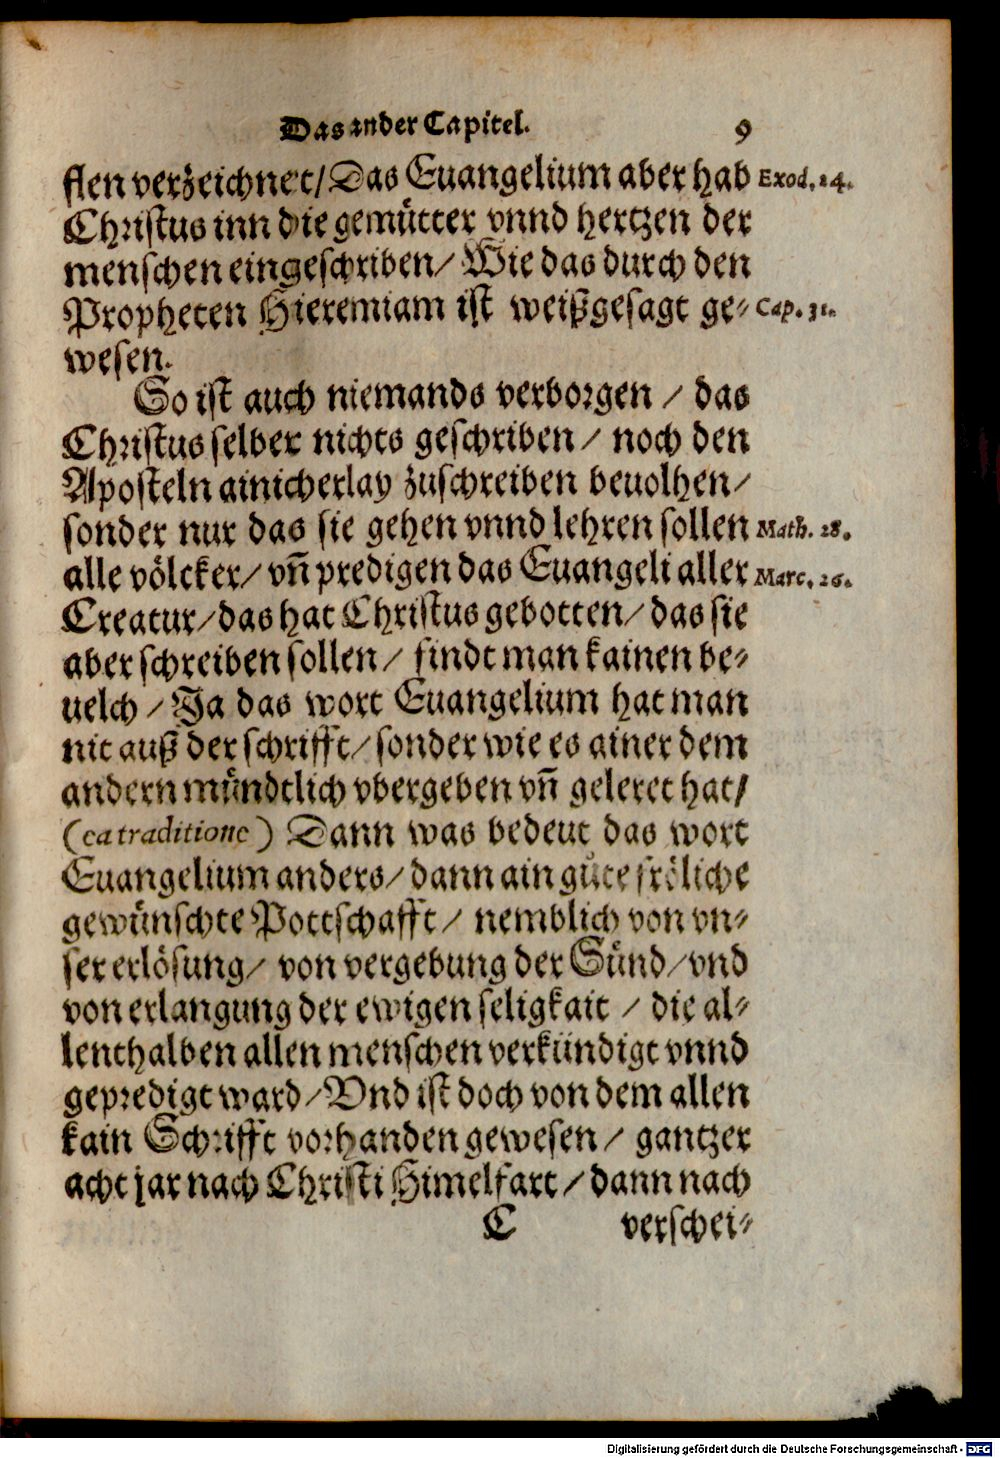 Das ander Capitel. 9
flen verzeichnet/ Das Euangelium aber hab Exod. 24.
Christus inn die gemütter vnnd hertzen der
menschen eingeschriben/ Wie das durch den
Propheten Hieremiam ist weißgesagt ge- Cap. 31.
wesen.
So ist auch niemands verborgen / das
Christus selber nichts geschriben/ noch den
Aposteln ainicherlay zuschreiben beuolhen/
sonder nur das sie gehen vnnd lehren sollen Math. 28.
alle völcker/ vñ predigen das Euangeli aller Marc. 16.
Creatur/ das hat Christus gebotten/ das sie
aber schreiben sollen/ findt man kainen be-
uelch / Ja das wort Euangelium hat man
nit auß der schrifft/ sonder wie es ainer dem
andern mündtlich vbergeben vñ geleret hat/
(ea traditione) Dann was bedeut das wort
Euangelium anders/ dann ain gůte fröliche
gewünschte Pottschafft/ nemblich von vn-
ser erlösung/ von vergebung der Sünd/ vnd
von erlangung der ewigen seligkait / die al-
lenthalben allen menschen verkündigt vnnd
gepredigt ward/ Vnd ist doch von dem allen
kain Schrifft vorhanden gewesen/ gantzer
acht jar nach Christi Himelfart/ dann nach
C verschei-
Digitalisierung gefördert durch die Deutsche Forschungsgemeinschaft - DFG